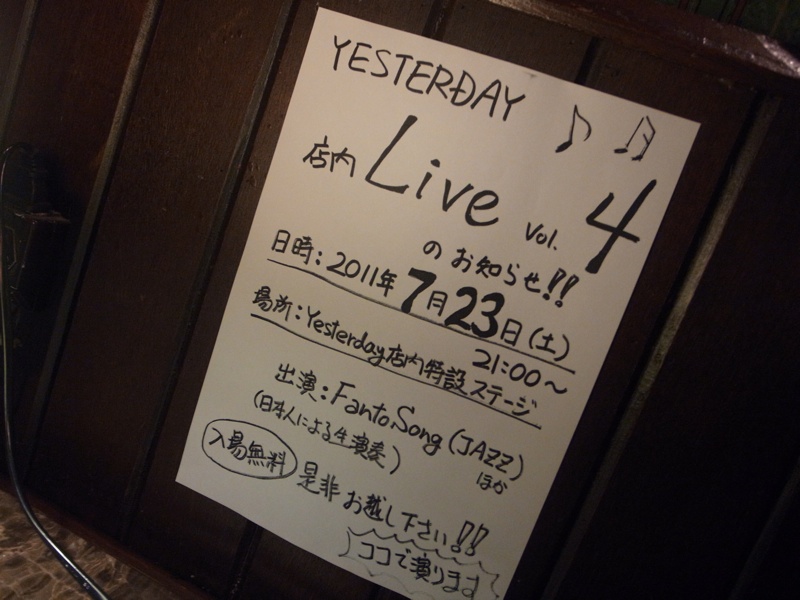 YESTERDAY
店内 Live Vol. 4
のお知らせ!!
日時:2011年7月23日(土)
21:00〜
場所:Yesterday店内特設ステージ
出演:Fanto.Song (JAZZ)
ほか
(日本人による生演奏)
入場無料 是非お越し下さい!!
ココで演ります